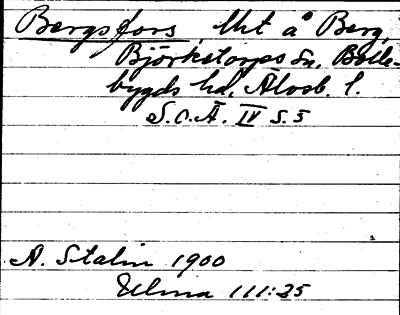 Bergsfors, lht å Berg,
Björketorps sn, Bolle-
bygds hd, Älvsb. l.
S.O.Ä. IV s. 5
A. Stalin 1900
Ulma 111:35